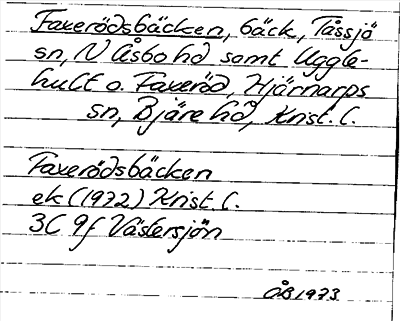 Faxerödsbäcken, bäck, Tåssjö
sn, N Åsbo hd samt Uggle-
hult o. Faxeröd, Hjärnarps
sn, Bjäre hd, Krist. l.
Faxerödsbäcken
ek (1972) Krist l.
3C 9f Västersjön
ÅB 1973